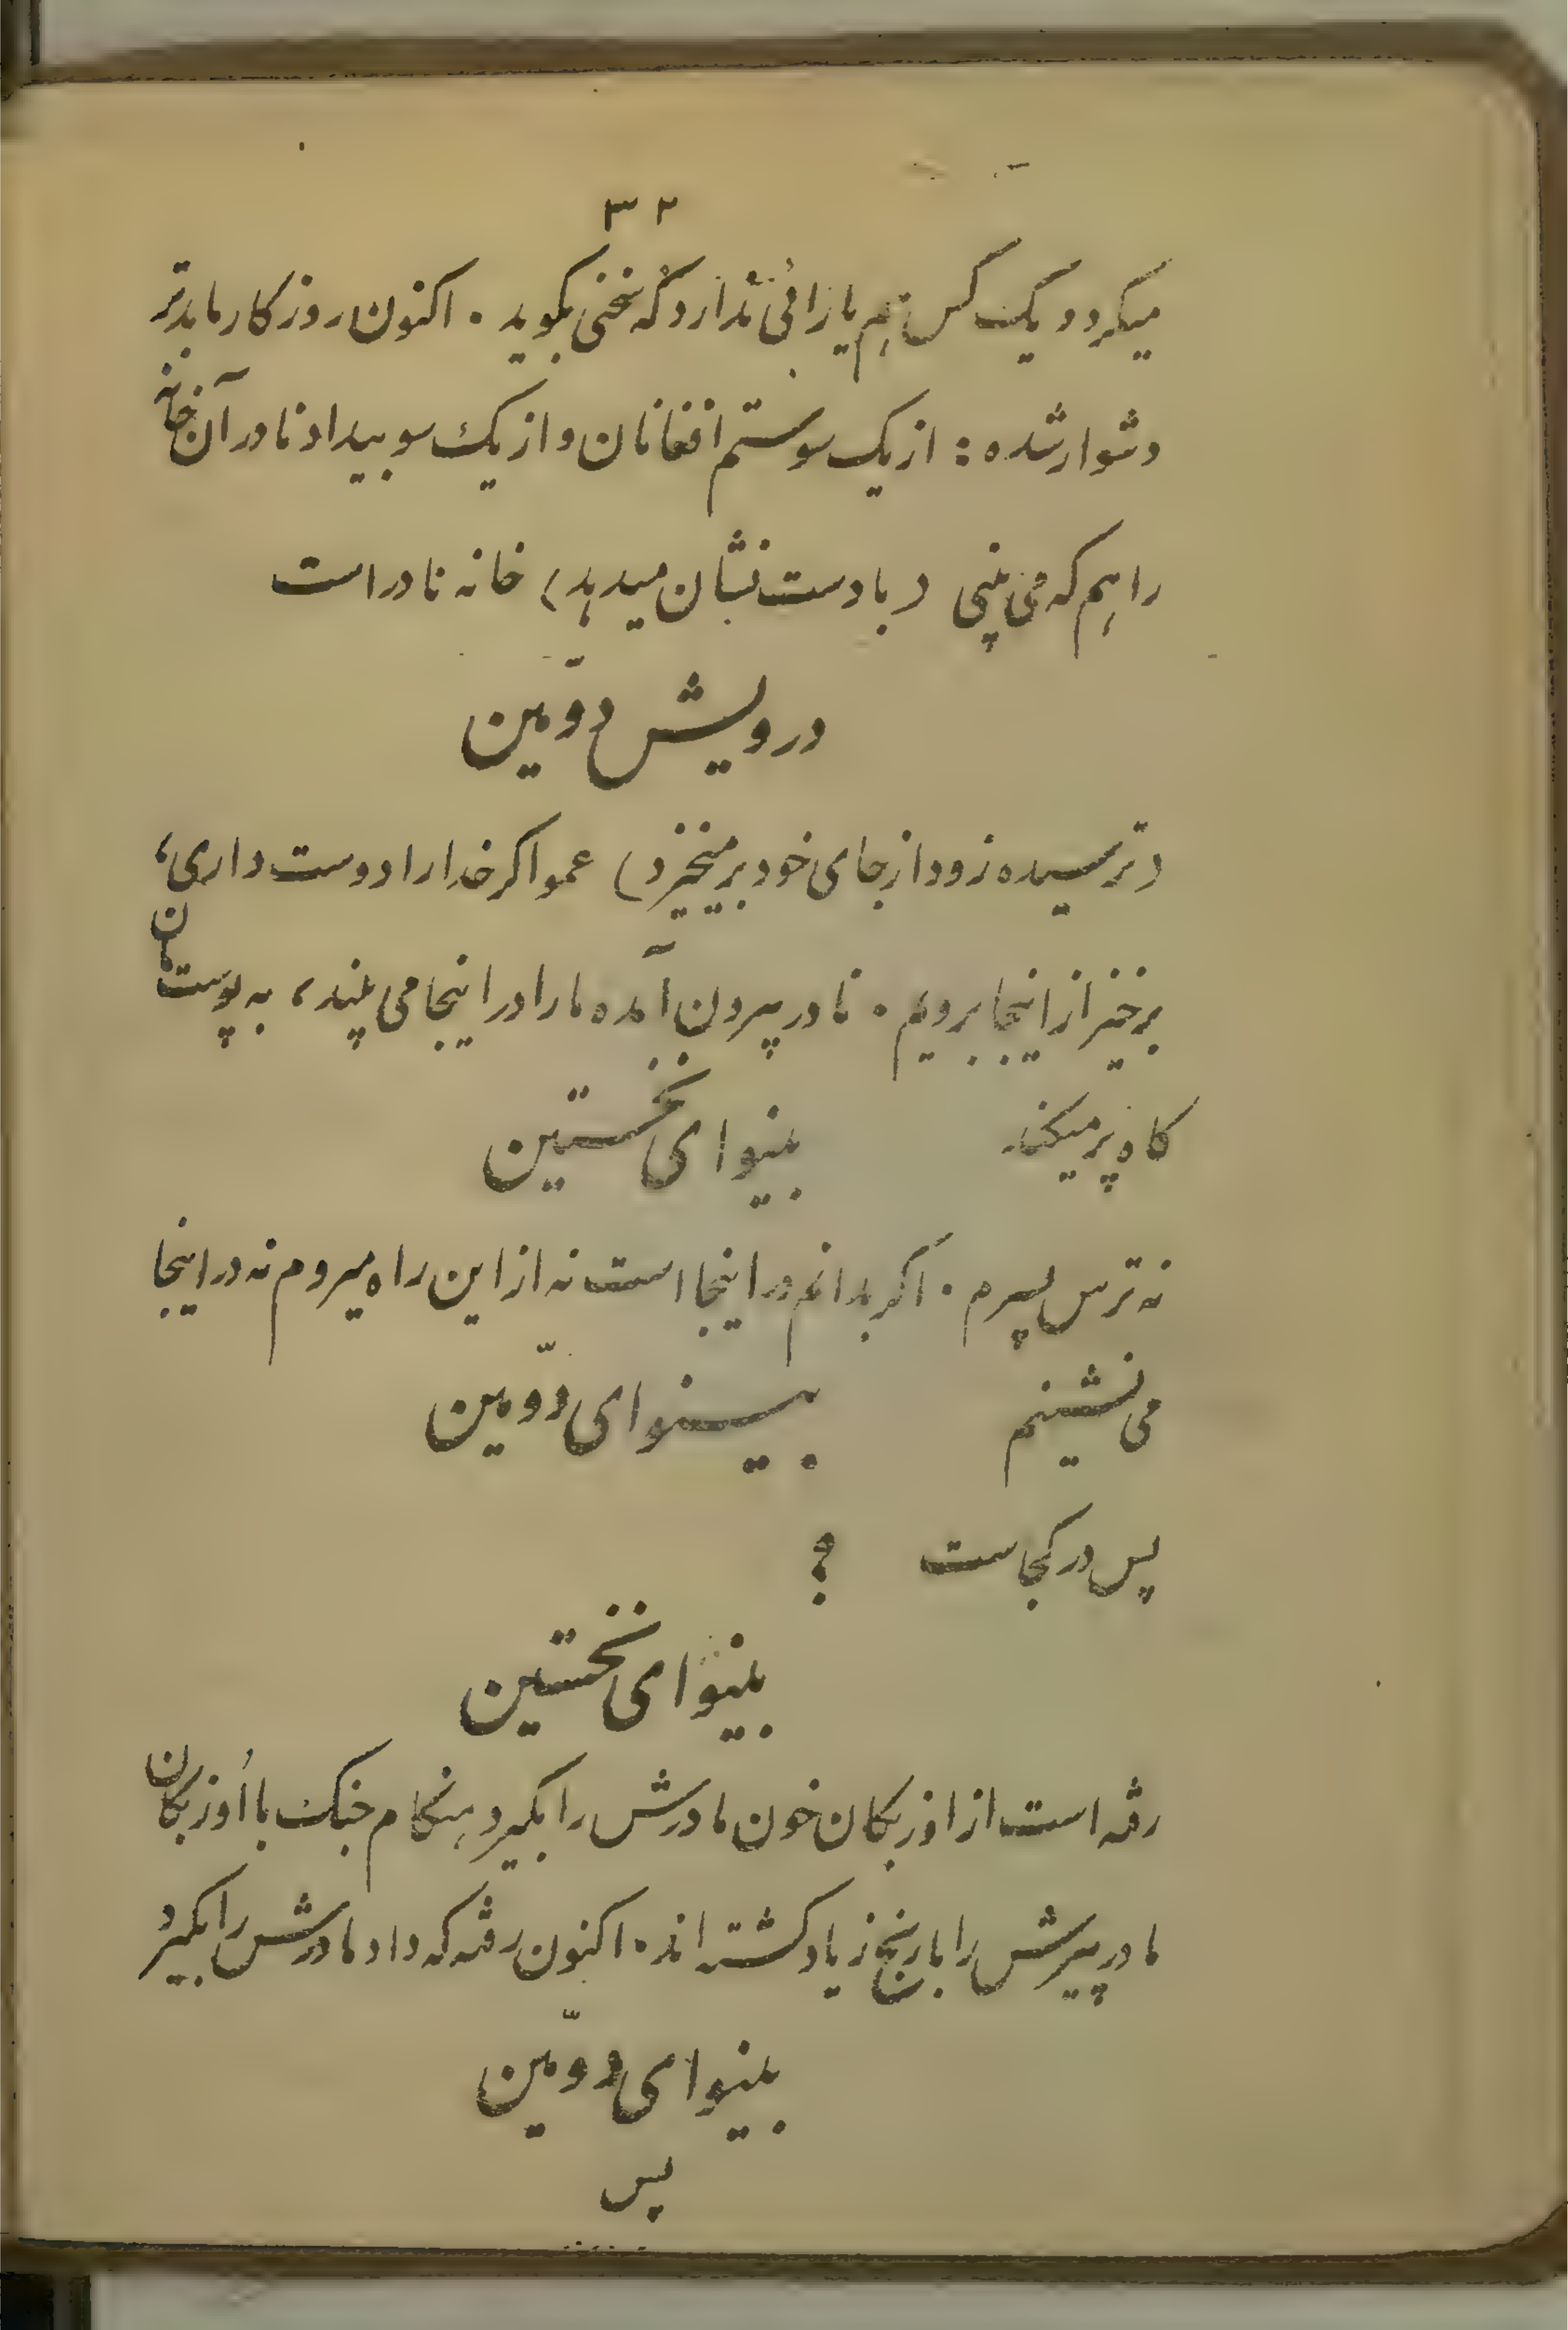 ۳۲
میکرد و یک کس هم یارائی ندارد که سخنی بگوید . اکنون روزگار ما بدتر
دشوار شده : از یک سو ستم افغانان و از یک سو بیداد نادر آن خانه
را هم که می بینی ( با دست نشان میدهد ) خانه نادر است
درویش دوّمین
( ترسیده زود از جای خود برمیخیزد ) عمو اگر خدا را دوست داری ،
برخیز از اینجا برویم . نادر بیرون آمده ما را در اینجا می بیند ، به پوستمان
کاه پر میکند.
بینوای نخستین
نه ترس پسرم . اگر بدانم در اینجا است نه از این راه میروم نه در اینجا
می نشینم
بینوای دوّمین
پس در کجاست ؟
بینوای نخستین
رفته است از اوزبکان خون مادرش را بگیرد هنگام جنگ با اُوزبکان
مادر پیرش را با رنج زیاد کشته اند . اکنون رفته که داد مادرش را بگیرد
بینوای دوّمین
پس